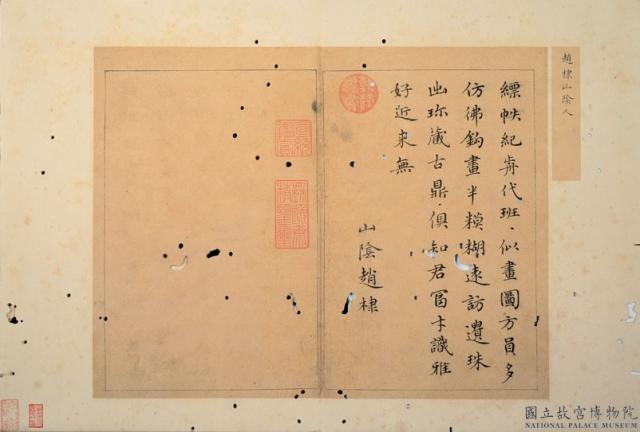 趙棣山陰人
縹帙紀歬代班〻似畫圖方員多
仿佛鈎畫半糢糊遠訪遺珠
出珍藏古鼎俱知君冨才識雅
好近來無
山陰趙棣
國立故宮博物院
NATIONAL PALACE MUSEUM